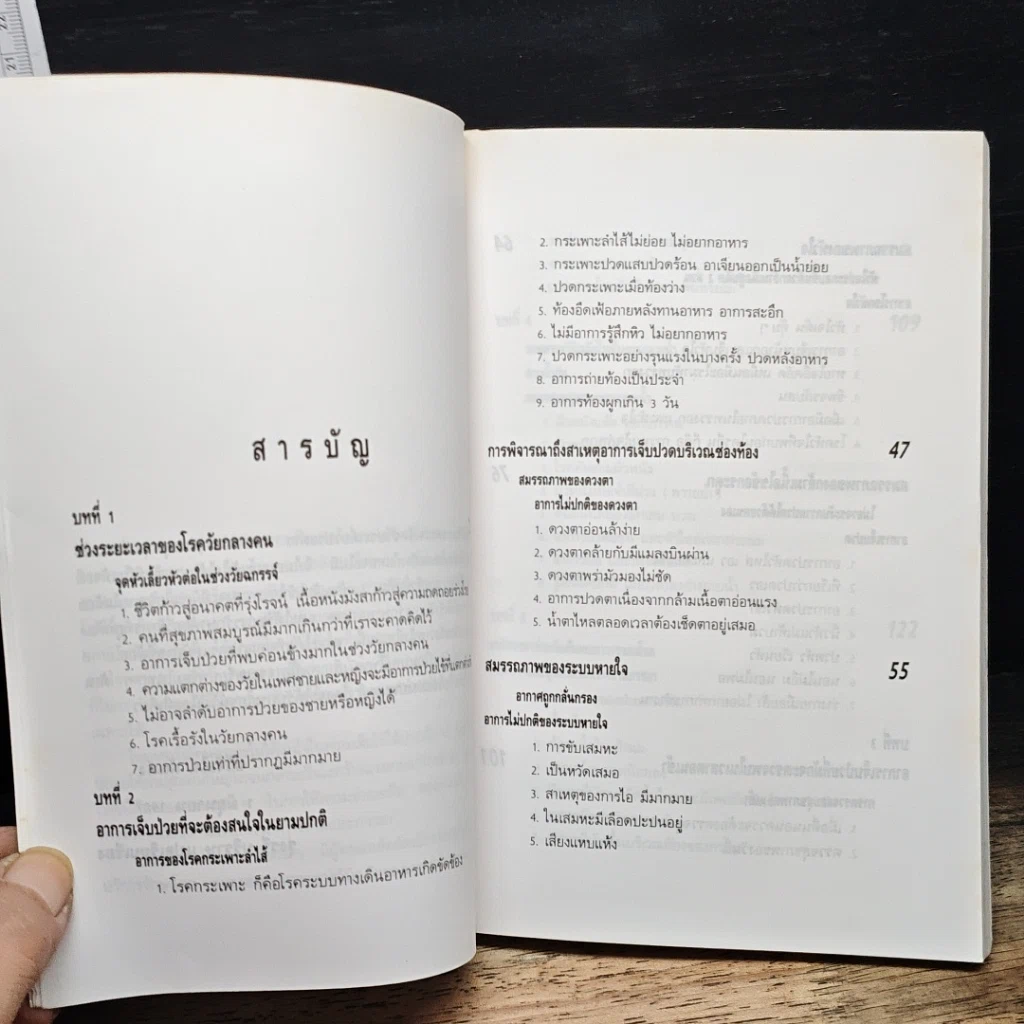 สารบัญ
บทที่ 1
ช่วงระยะเวลาของโรควัยกลางคน
จุดหัวเลี้ยวหัวต่อในช่วงวัยฉกรรจ์
1. ชีวิตก้าวสู่อนาคตที่รุ่งโรจน์ เนื้อหนังมังสาก้าวสู่ความถดถอย
2. คนที่สุขภาพสมบูรณ์มีมากเกินกว่าที่เราจะคาดคิดไว้
3. อาการเจ็บป่วยที่พบค่อนข้างมากในช่วงวัยกลางคน
4. ความแตกต่างของวัยในเพศชายและหญิงจะมีอาการป่วยไข้ที่
5. ไม่อาจลำดับอาการป่วยของชายหรือหญิงได้
6. โรคเรื้อรังในวัยกลางคน
7. อาการป่วยเท่าที่ปรากฏมีมากมาย
บทที่ 2
อาการเจ็บป่วยที่จะต้องสนใจในยามปกติ
อาการของโรคกระเพาะลำไส้
1. โรคกระเพาะ ก็คือโรคระบบทางเดินอาหารเกิดขัดข้อง
2. กระเพาะลำไส้ไม่ย่อย ไม่อยากอาหาร
3. กระเพาะปวดแสบปวดร้อน อาเจียนออกเป็นน้ำย่อย
4. ปวดกระเพาะเมื่อท้องว่าง
5. ท้องอืดเฟ้อภายหลังทานอาหาร อาการสะอึก
6. ไม่มีอาการรู้สึกหิว ไม่อยากอาหาร
7. ปวดกระเพาะอย่างรุนแรงในบางครั้ง ปวดหลังอาหาร
8. อาการถ่ายท้องเป็นประจำ
9. อาการท้องผูกเกิน 3 วัน
การพิจารณาถึงสาเหตุอาการเจ็บปวดบริเวณช่องท้อง 47
สมรรถภาพของดวงตา
อาการไม่ปกติของดวงตา
1. ดวงตาอ่อนล้าง่าย
2. ดวงตาคล้ายกับมีแมลงบินผ่าน
3. ดวงตาพร่ามัวมองไม่ชัด
4. อาการปวดตาเนื่องจากกล้ามเนื้อตาอ่อนแรง
5. น้ำตาไหลตลอดเวลาต้องเช็ดตาอยู่เสมอ
สมรรถภาพของระบบหายใจ 55
อากาศถูกกลั่นกรอง
อาการไม่ปกติของระบบหายใจ
1. การขับเสมหะ
2. เป็นหวัดเสมอ
3. สาเหตุของการไอ มีมากมาย
4. ในเสมหะมีเลือดปะปนอยู่
5. เสียงแหบแห้ง
21